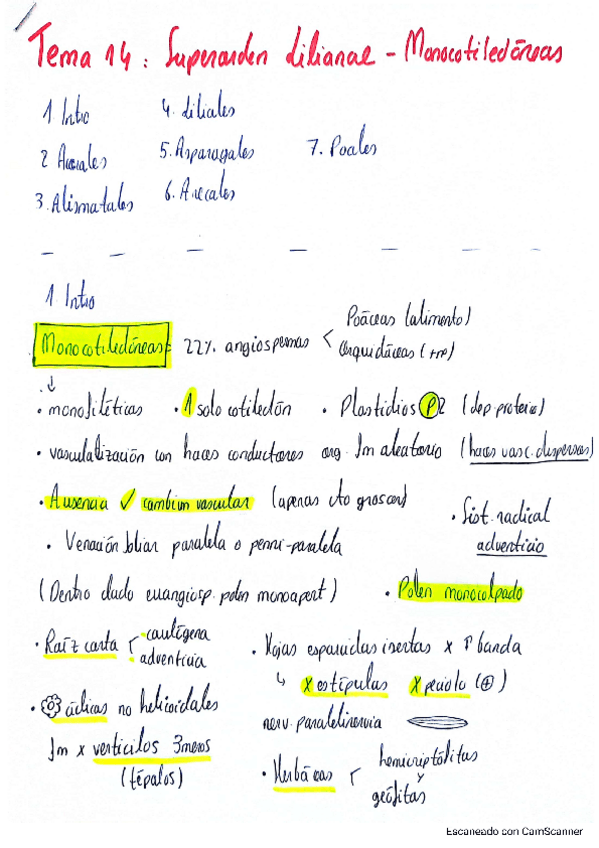 Tema 14: Superorden Lilianae - Monocotiledóneas
1 Intro
2 Acorales
3. Alismatales
4. Liliales
5. Asparagales
6. Arecales
7. Poales
1. Intro
Monocotiledóneas = 22% angiospermas < Poáceas (alimento)
Orquidáceas (+re)
↓
· monofiléticas · 1 solo cotiledón · Plastidios P2 (dep proteica)
· vasculatización con haces conductores org. Im aleatorio (haces vasc. dispersos)
· Ausencia ✓ cambium vascular (apenas cto grosor)
· Sist. radical
adventicio
· Venación foliar paralela o penni-paralela
(Dentro clado euangiosp. polen monoapert)
· Polen monocolpado
· Raíz corta
- caulógena
- adventicia
· Hojas esparcidas insertas x ↑ banda
↳ x estípulas x peciolo (⊕)
nerv. paralelinervia
· cíclicas no helicoidales
Im x verticilos 3meros
(tépalos)
· Herbáceas
hemicriptófitas
y
geófitas
Escaneado con CamScanner